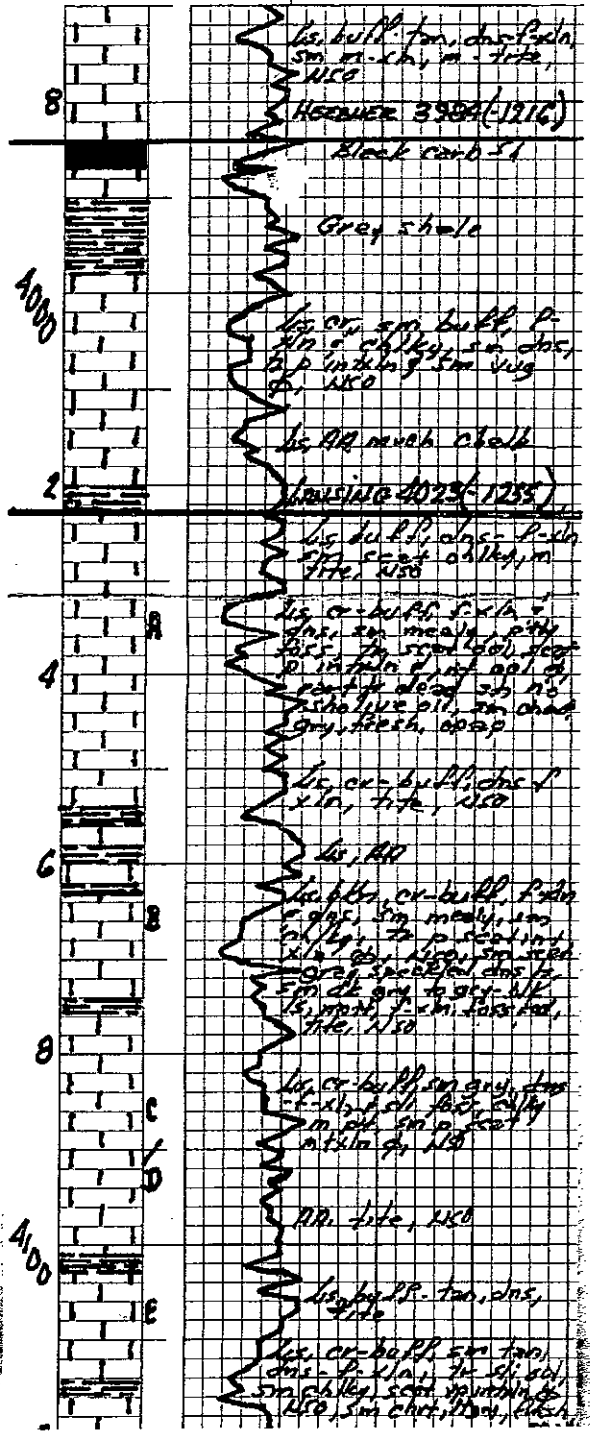 Ls, buff-tan, dns-f-xln,
sm m-xln, m-tite,
NSO
8
HEEBNER 3984(-1216)
Black carb sh
Grey shale
4000
Ls, cr, sm buff, f-
xln & chlky, sm dns,
p intxln & sm vug
φ, NSO
Ls, AA, much chalk
2
LANSING 4023(-1255)
Ls, buff, dns-f-xln
sm scat chlky, m
tite, NSO
A
Ls, cr-buff, f-xln &
dns, sm mealy, ptly
foss, tr scat ool, scat
p intxln φ, int ool φ,
dead stn no
show live oil, sm chert,
gry, fresh, opaq
4
Ls, cr-buff, dns-f
xln, tite, NSO
6
Ls, AA
B
Ls, cr-buff, f-xln
& dns, sm mealy, sm
chlky, tr p scat int
xln φ, NSO, sm
grey dns ls,
sm dk gry to gry-blk
ls, mott, f-xln, foss
tite, NSO
8
Ls, cr-buff, sm gry, dns
-f-xln, foss, chlky
sm p scat
intxln φ, NSO
C/D
AA, tite, NSO
4100
Ls, buff-tan, dns,
tite
E
Ls, cr-buff, sm tan,
dns-f-xln, tr sli ool,
sm chlky, scat intxln φ
NSO, sm chrt, fresh